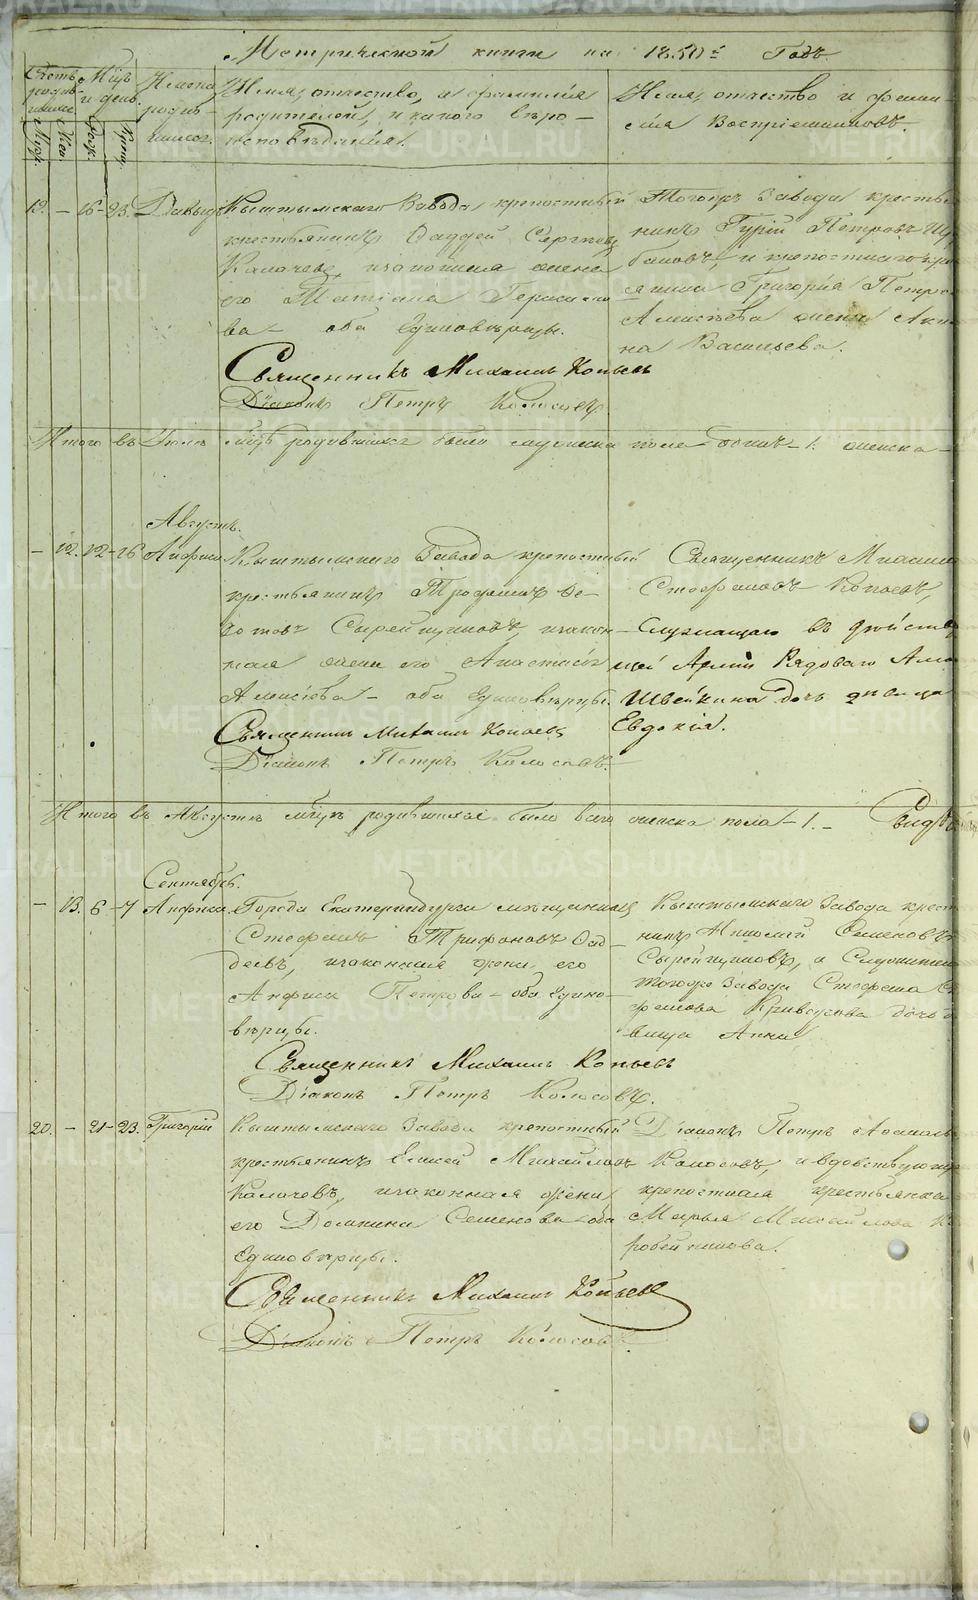 Метрической книги на 1850й Годъ.
Счетъ родившихся Мцъ и день Имена родившихся.
Муж. Жен. Рожд. Крещ.
Имя, отчество, и фамилия родителей, и какого вѣроисповѣдания.
Имя, отчество и фамилия Воспріемниковъ.
12. – 16–23. Давыдъ
Кыштымскаго Завода крепостный
крестьянинъ Фаддей Сергѣевъ
Калачевъ, и законная жена
его Татіана Герасимова
– оба Единовѣрцы.
Священникъ Михаилъ Копьевъ
Діаконъ Петръ Колосовъ.
Тогожъ Завода
Гурій Петровъ
и крепостнаго
Григорія Петрова
Алексѣева жена
Васильева.
Итого въ Июлѣ мцѣ родившихся было мужеска пола одинъ – 1. женска –
Августъ.
– 12. 12–16 Анфиса
Кыштымскаго Завода крепостный
крестьянинъ Трофимъ Федотовъ
Сырейщиковъ, и законная
жена его Анастасія
Алексѣева – оба Единовѣрцы.
Священникъ Михаилъ Копьевъ
Діаконъ Петръ Колосовъ.
Священникъ Михаилъ
Стефановъ Копьевъ,
Служащаго въ действующей
Арміи Рядоваго
Швейкина дочь девица
Евдокія.
Итого въ Августѣ мцѣ родившихся было всего женска пола – 1. –
Сентябрь.
– 13. 6–7 Анфиса.
Города Екатеринбурга мѣщанинъ
Стефанъ Трифоновъ Фаддеевъ,
и законная жена его
Анфиса Петрова – оба Единовѣрцы.
Священникъ Михаилъ Копьевъ
Діаконъ Петръ Колосовъ.
Кыштымскаго Завода
Николай Семеновъ
Сырейщиковъ, и
тогоже Завода Стефана
Кривцова дочь
девица Анна
20. – 21–23. Григорій
Кыштымскаго Завода крепостный
крестьянинъ Елисей Михайловъ
Калачевъ, и законная жена
его Домнина Семенова – оба
Единовѣрцы.
Священникъ Михаилъ Копьевъ
Діаконъ Петръ Колосовъ.
Діаконъ Петръ
Колосовъ, и вдовствующая
крепостная крестьянка
Марья Михайлова
METRIKI.GASO-URAL.RU